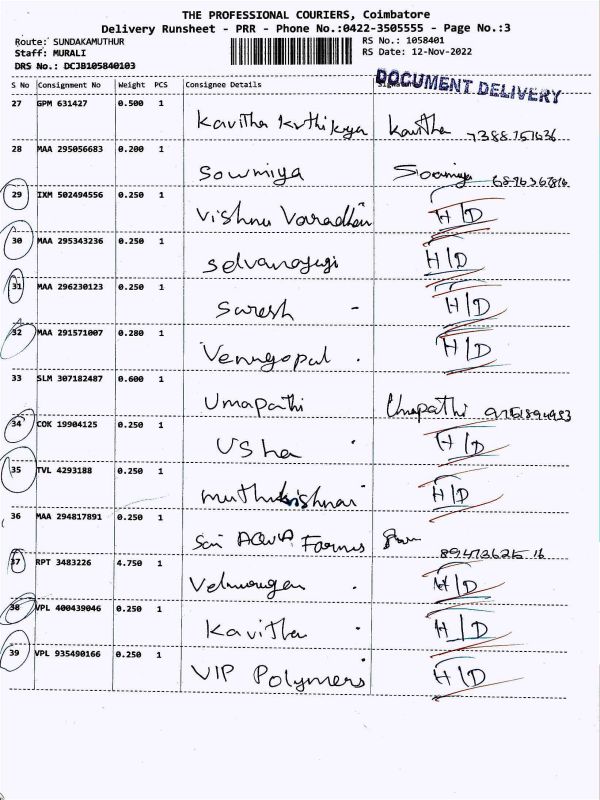 THE PROFESSIONAL COURIERS, Coimbatore
Delivery Runsheet - PRR - Phone No.:0422-3505555 - Page No.:3
Route: SUNDAKAMUTHUR RS No.: 1058401
Staff: MURALI RS Date: 12-Nov-2022
DRS No.: DCJB105840103
DOCUMENT DELIVERY
S No Consignment No Weight PCS Consignee Details
27 GPM 631427 0.500 1
Kavitha Kavitha
28 MAA 295056683 0.200 1
Sowmiya Sowmiya
29 IXM 502494556 0.250 1
Vishnu Varadhan H/D
30 MAA 295343236 0.250 1
H/D
31 MAA 296230123 0.250 1
Suresh - H/D
32 MAA 291571007 0.280 1
Venugopal . H/D
33 SLM 307182487 0.600 1
Umapathi Umapathi
34 COK 19904125 0.250 1
Usha H/D
35 TVL 4293188 0.250 1
H/D
36 MAA 294817891 0.250 1
Sai AQUA Farms
37 RPT 3483226 4.750 1
Velmurugan . H/D
38 VPL 400439046 0.250 1
Kavitha . H/D
39 VPL 935490166 0.250 1
VIP Polymers H/D